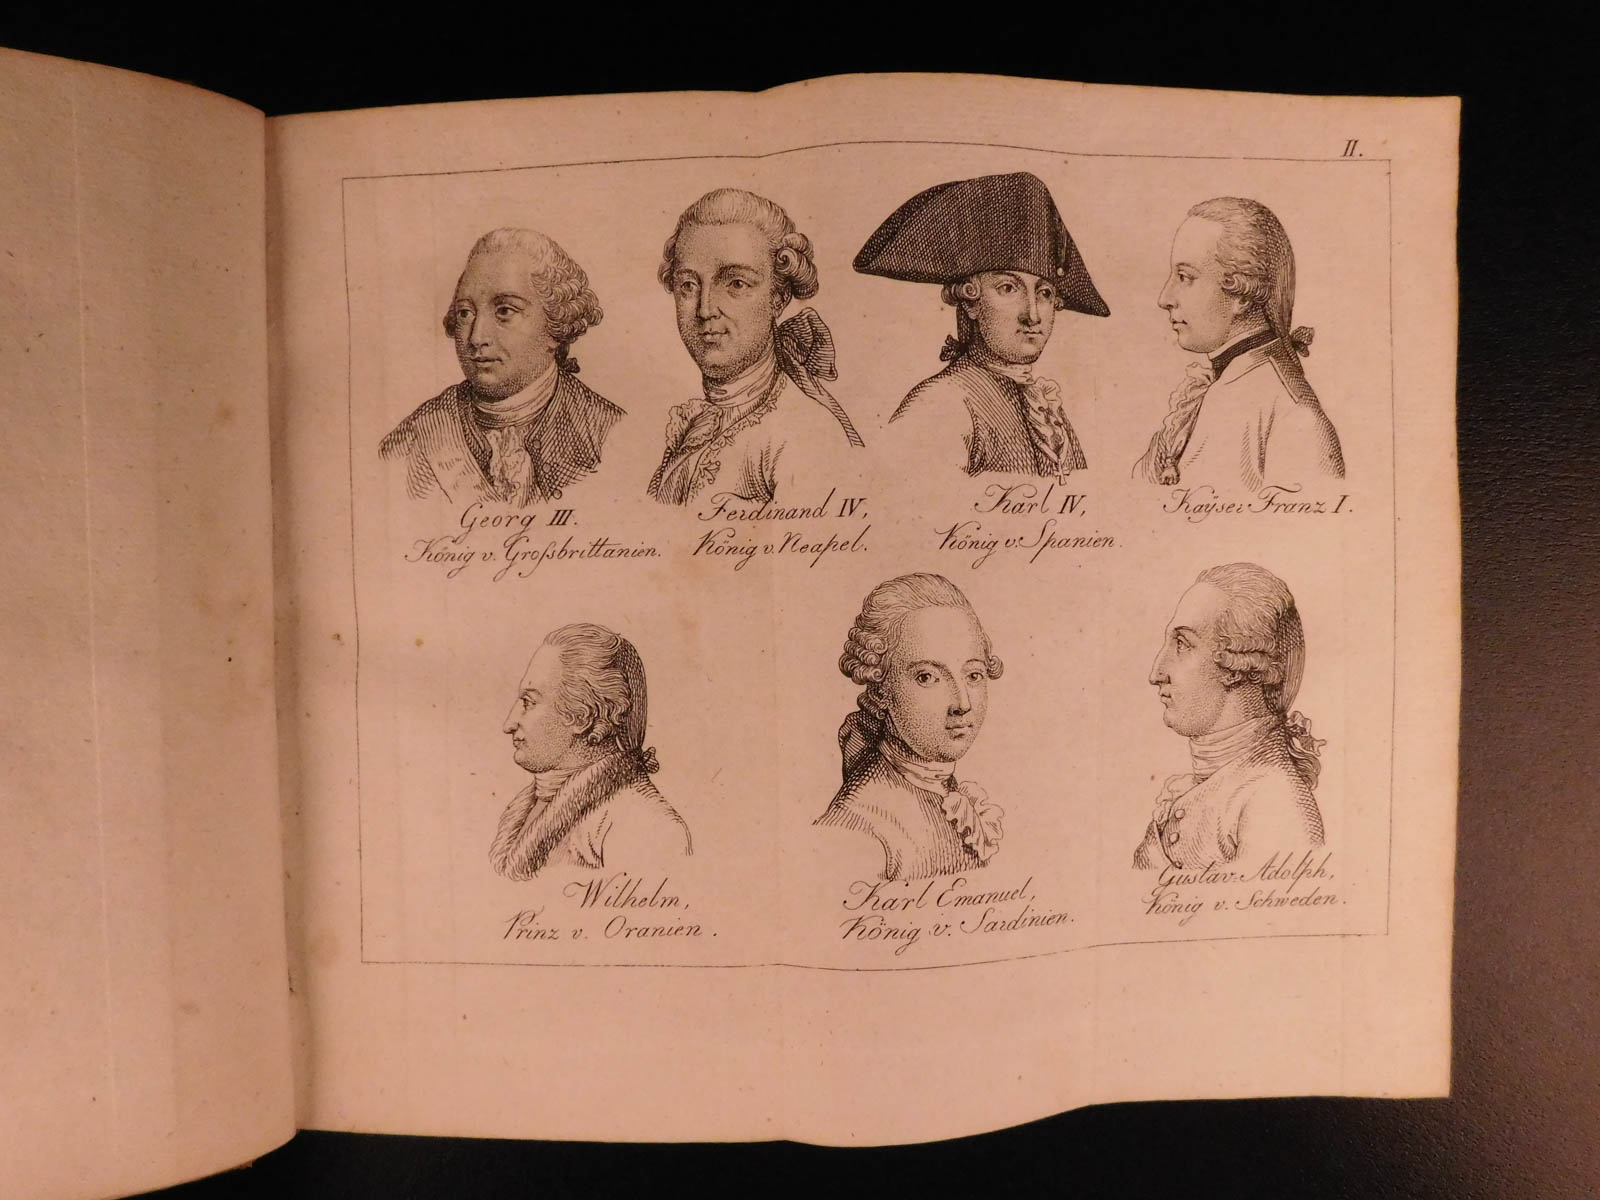 II.
Georg III.
König v. Großbrittanien.
Ferdinand IV,
König v. Neapel.
Karl IV,
König v. Spanien.
Kaÿser Franz I.
Wilhelm,
Prinz v. Oranien.
Karl Emanuel,
König v. Sardinien.
Gustav Adolph,
König v. Schweden.